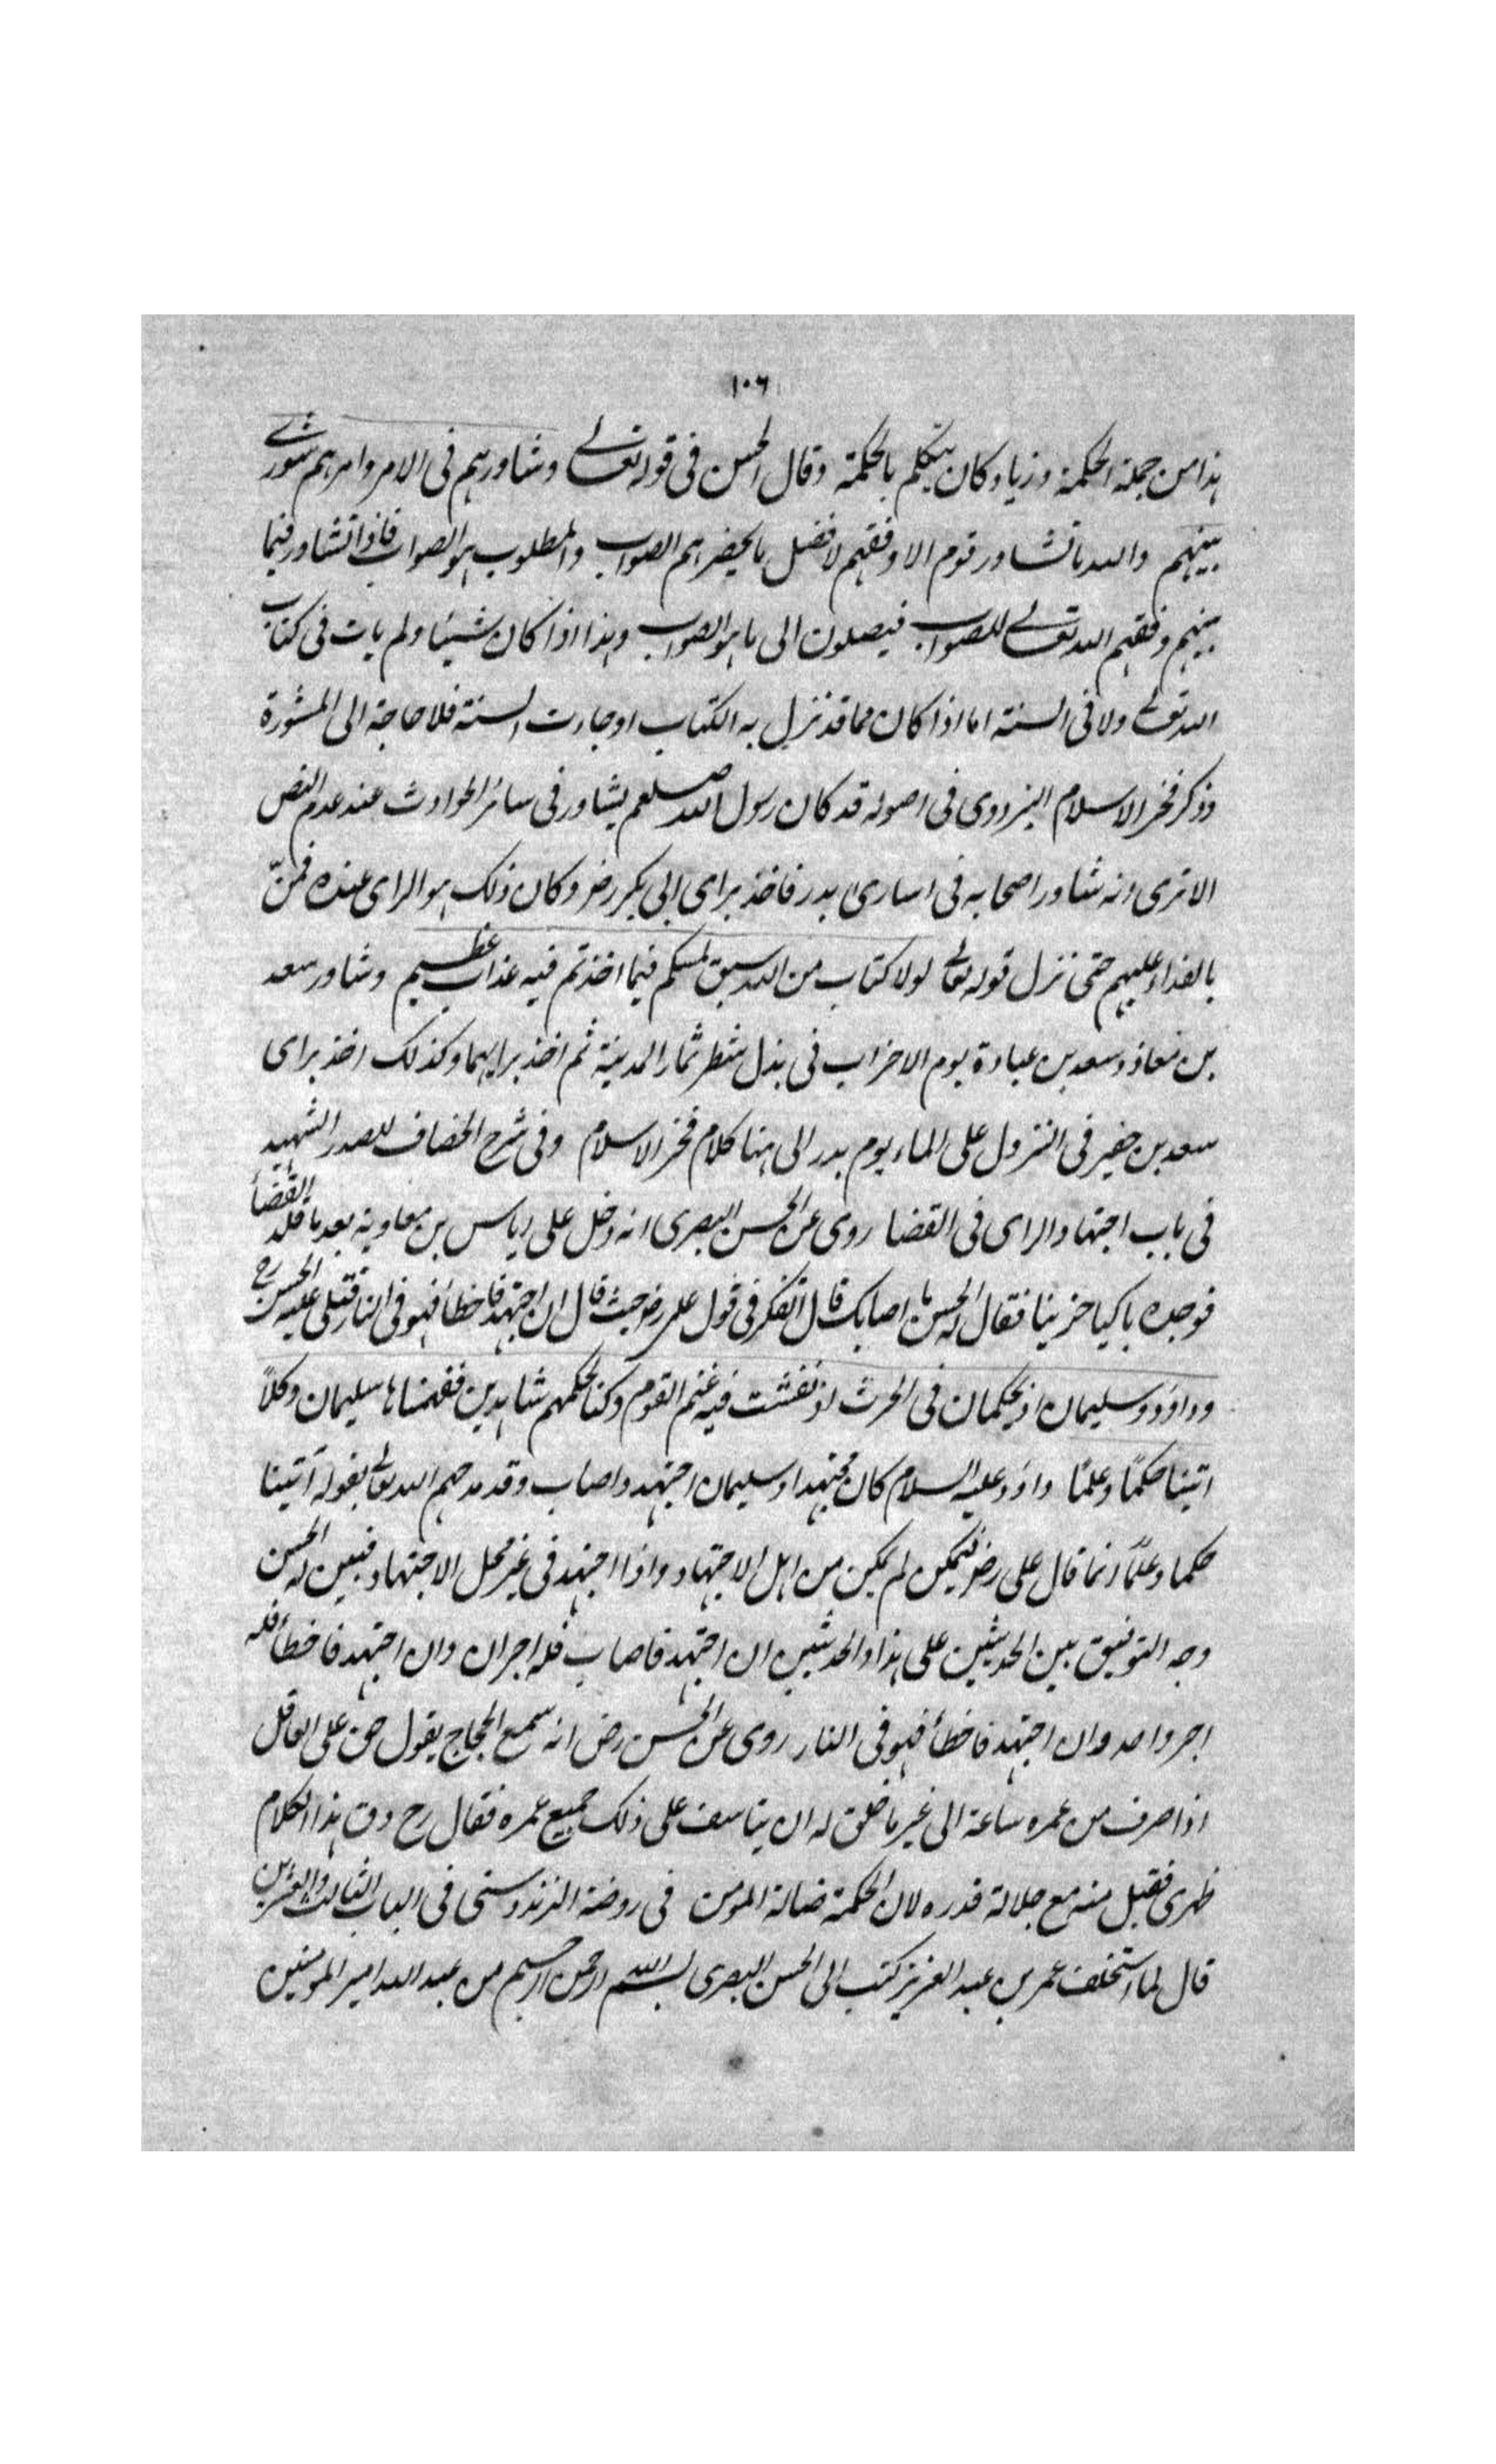 ١٠٦
هذا من جملة الحكمة وزياد كان يتكلم بالحكمة وقال الحسن فى قوله تعالے وشاورهم فى الامر وامرهم شورے
بينهم والله ما تشاور قوم الا وفقهم لافضل ما يحضرهم الصواب والمطلوب هو الصواب فاذا تشاور فيما
بينهم وفقهم الله تعالے للصواب فيصلون الى ما هو الصواب وهذا اذا كان شيئا ولم يات فى كتاب
الله تعالے ولا فى السنة اما اذا كان مما قد نزل به الكتاب او جاءت السنة فلا حاجة الى المشورة
وذكر فخر الاسلام البزدوى فى اصوله قد كان رسول الله صلعم يشاور فى سائر الحوادث عند عدم النص
الا ترى انه شاور اصحابه فى اسارى بدر فاخذ براى ابى بكر رض وكان ذلك هو الراى عنده فمنّ
بالفداء عليهم حتى نزل قوله تعالے لولا كتاب من الله سبق لمسكم فيما اخذتم فيه عذاب عظيم وشاور سعد
بن معاذ وسعد بن عبادة يوم الاحزاب فى بذل شطر ثمار المدينة ثم اخذ برايهما وكذلك اخذ براى
سعد بن حضير فى النزول على الماء يوم بدر الى هنا كلام فخر الاسلام وفى شرح الخصاف للصدر الشهيد
فى باب اجتهاد الراى فى القضا روى عن الحسن البصرى انه دخل على اياس بن معاوية بعد ما قلد القضأ
فوجده باكيا حزينا فقال له الحسن ما اصابك قال اتفكر فى قول على رض حيث قال ان اجتهد فاخطأ فهو فى النار فتلى عليه الحسن رح
وداؤد وسليمان اذ يحكمان فى الحرث اذ نفشت فيه غنم القوم وكنا لحكمهم شاهدين ففهمناها سليمان وكلاً
اتينا حكمًا وعلمًا داؤد عليه السلام كان مجتهدا وسليمان اجتهد واصاب وقد مدحهم الله تعالے بقوله آتينا
حكما وعلمًا انما قال على رض لم يكن من اهل الاجتهاد واذا اجتهد فى غير محل الاجتهاد فبين له الحسن
وجه التوفيق بين الحديثين على هذا والحديثين ان اجتهد فاصاب فله اجران وان اجتهد فاخطأ فله
اجر واحد وان اجتهد فاخطأ فهو فى النار روى عن الحسن رض انه سمع الحجاج يقول حق على العاقل
اذا صرف من عمره ساعة الى غير ما خلق له ان يتاسف على ذلك جميع عمره فقال رح دق هذا الكلام
ظهرى فقبل منه مع جلالة قدره لان الحكمة ضالة المومن فى روضة الزندوستى فى الباب الثالث والعشرين
قال لما استخلف عمر بن عبد العزيز كتب الى الحسن البصرى بسم الله الرحمن الرحيم من عبد الله امير المومنين